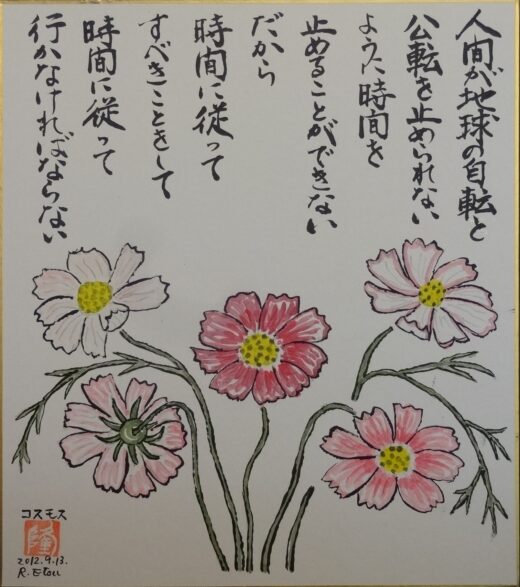 人間が地球の自転と
公転を止められない
ように時間を
止めることができない
だから
時間に従って
すべきことをして
時間に従って
行かなければならない
コスモス
隆
2012.9.13.
R.Etou